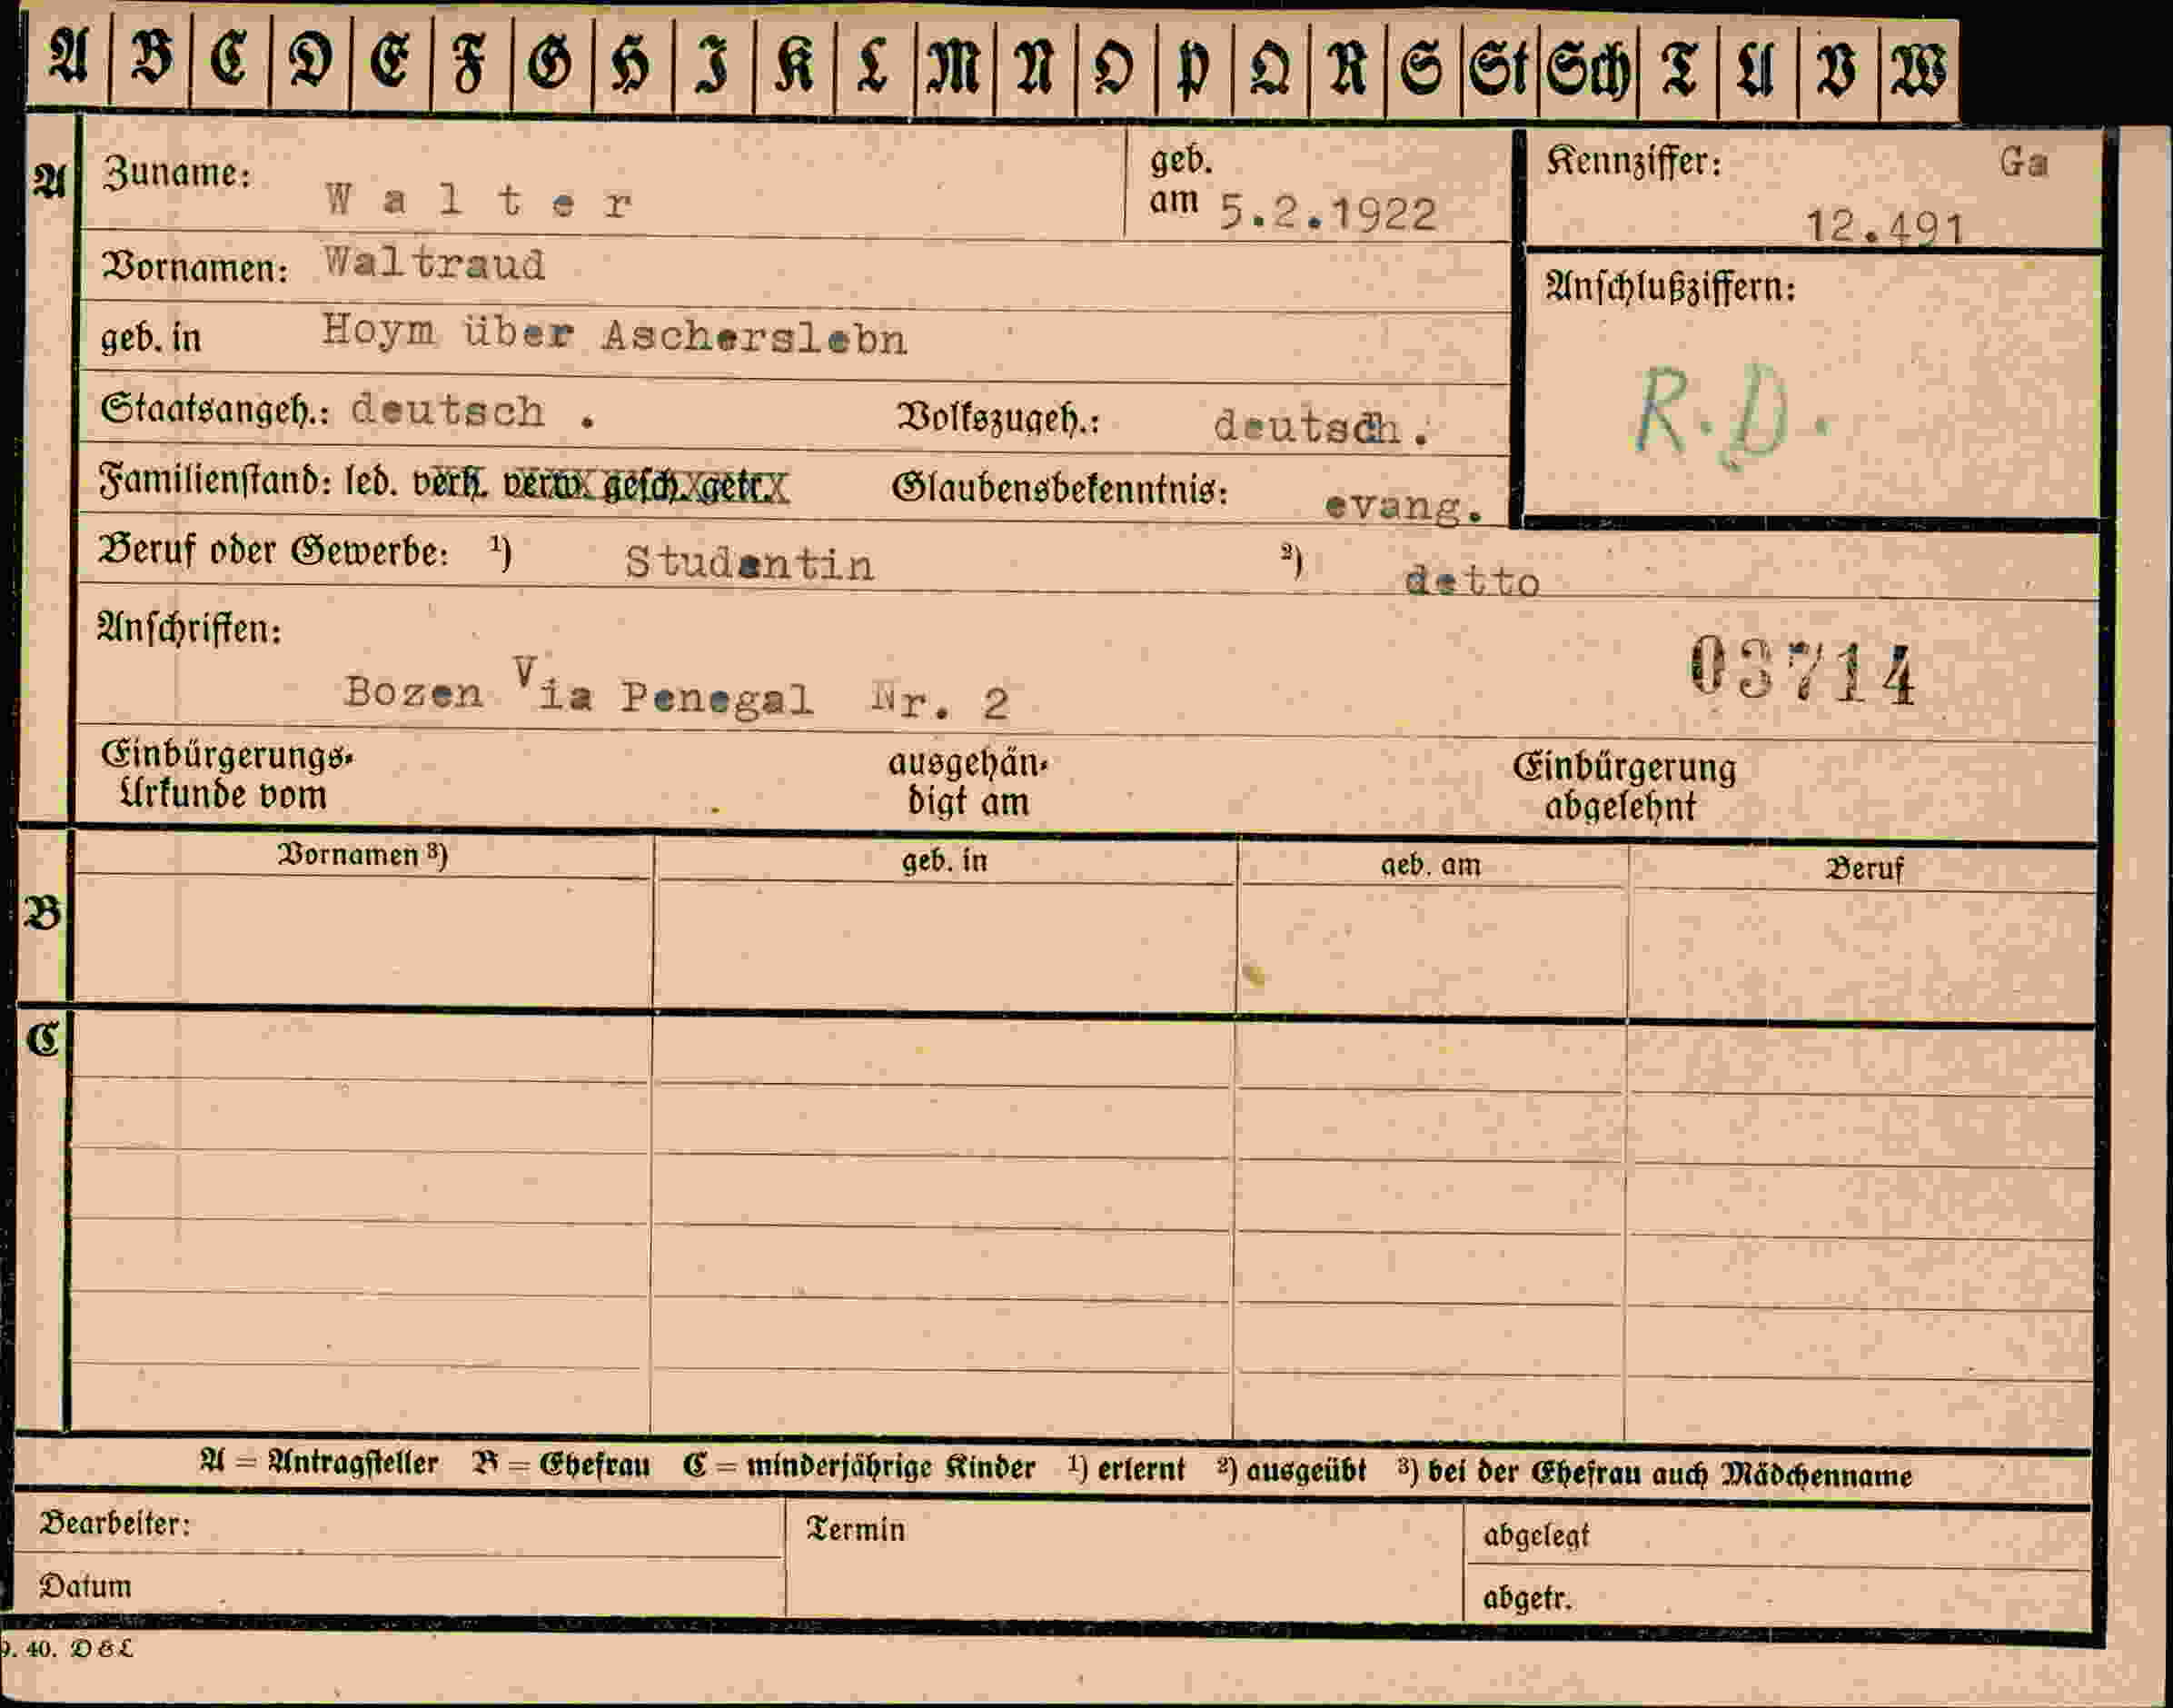 A B C D E F G H I K L M N O P Q R S St Sch T U V W
A
Zuname: Walter
geb. am 5.2.1922
Kennziffer: Ga
12.491
Vornamen: Waltraud
Anschlußziffern:
R.D.
geb. in Hoym über Ascherslebn
Staatsangeh.: deutsch . Volkszugeh.: deutsch.
Familienstand: led. verh. verw. gesch. getr. Glaubensbekenntnis: evang.
Beruf oder Gewerbe: ¹) Studentin ²) detto
Anschriften:
03714
Bozen Via Penegal Nr. 2
Einbürgerungs-
Urkunde vom
ausgehän-
digt am
Einbürgerung
abgelehnt
Vornamen ³) geb. in geb. am Beruf
B
C
A = Antragsteller B = Ehefrau C = minderjährige Kinder ¹) erlernt ²) ausgeübt ³) bei der Ehefrau auch Mädchenname
Bearbeiter: Termin abgelegt
Datum abgetr.
9. 40. D&L